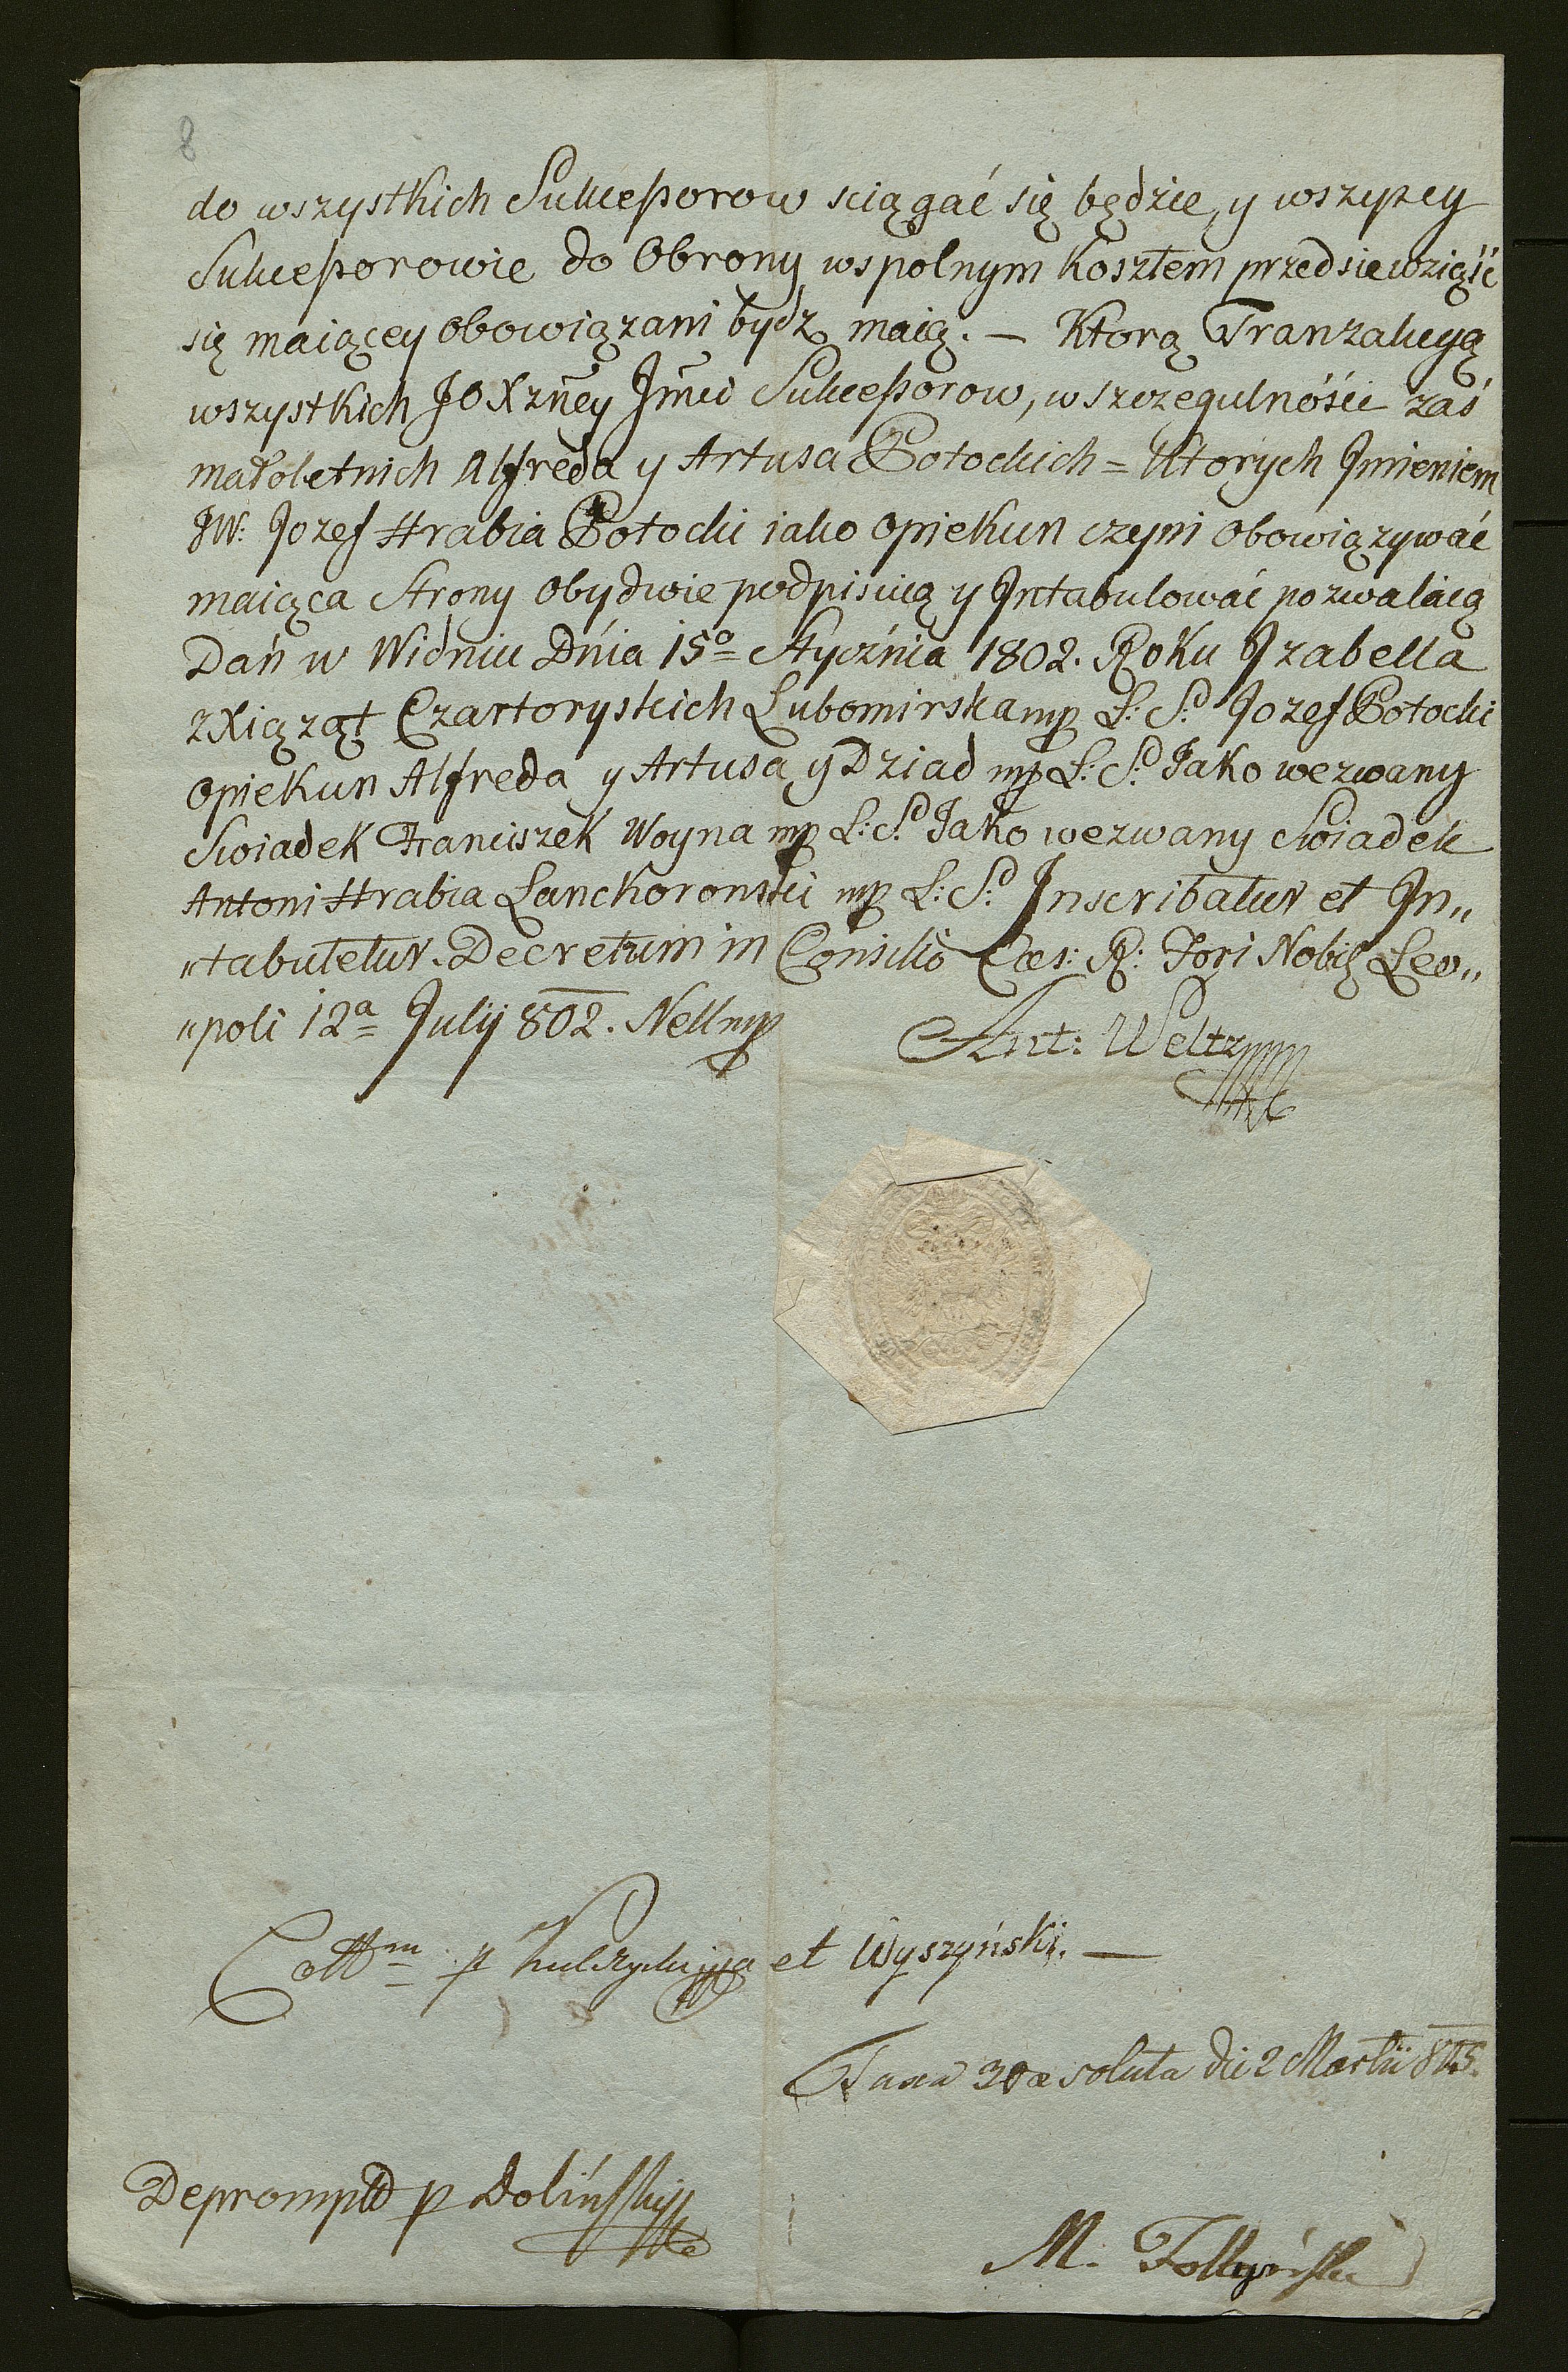 8
do wszystkich Sukceßorow sciągać się będzie, y wszyscy
Sukceßorowie do Obrony wspolnym Kosztem przedsiewziąść
się maiącey obowiązani bydz maią. — Ktorą Tranzakcyą
wszystkich JOXzney Jmci Sukceßorow, w szczegulnóści zaś
małoletnich Alfreda y Artusa Potockich = Ktorych Jmieniem
JW: Jozef Hrabia Potocki iako Opiekun czyni obowiązywać
maiąca Strony obydwie podpisuią y Intabulować pozwalaią
Dań w Widniu Dnia 15º Stycznia 1802. Roku Jzabella
z Xiąząt Czartoryskich Lubomirska mp L: S. Jozef Potocki
Opiekun Alfreda y Artusa y Dziad mp L: S. Jako wezwany
Swiadek Franciszek Woyna mp L: S. Jako wezwany Swiadek
Antoni Hrabia Lanckoronski mp L: S. Inscribatur et In„
„tabuletur. Decretum in Consilio Cæs: R: Fori Nobil Leo„
„poli 12ª July 802. Nell mp
Ant: Weltz
Collm p et Wyszyński. —
Taxa 30 x soluta die 2 Martii
Deprompt p Doliński
M.